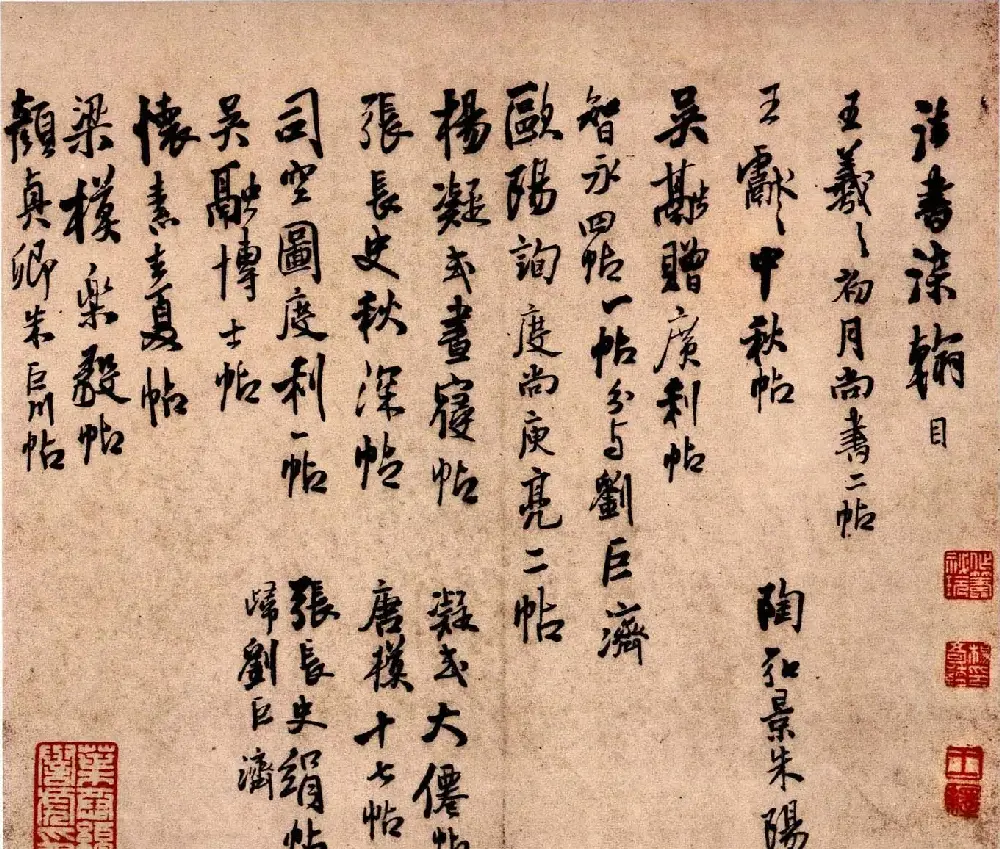 法書染翰目
王羲之初月尚書二帖
王獻之中秋帖
陶弘景朱陽
吳融贈廣利帖
智永四帖一帖分与劉巨濟
歐陽詢度尚庾亮二帖
楊凝式晝寢帖
凝式大僊帖
張長史秋深帖
唐模十七帖
司空圖度利一帖
張長史絹帖
歸劉巨濟
吳融博士帖
懷素去夏帖
梁模樂毅帖
顏真卿朱巨川帖